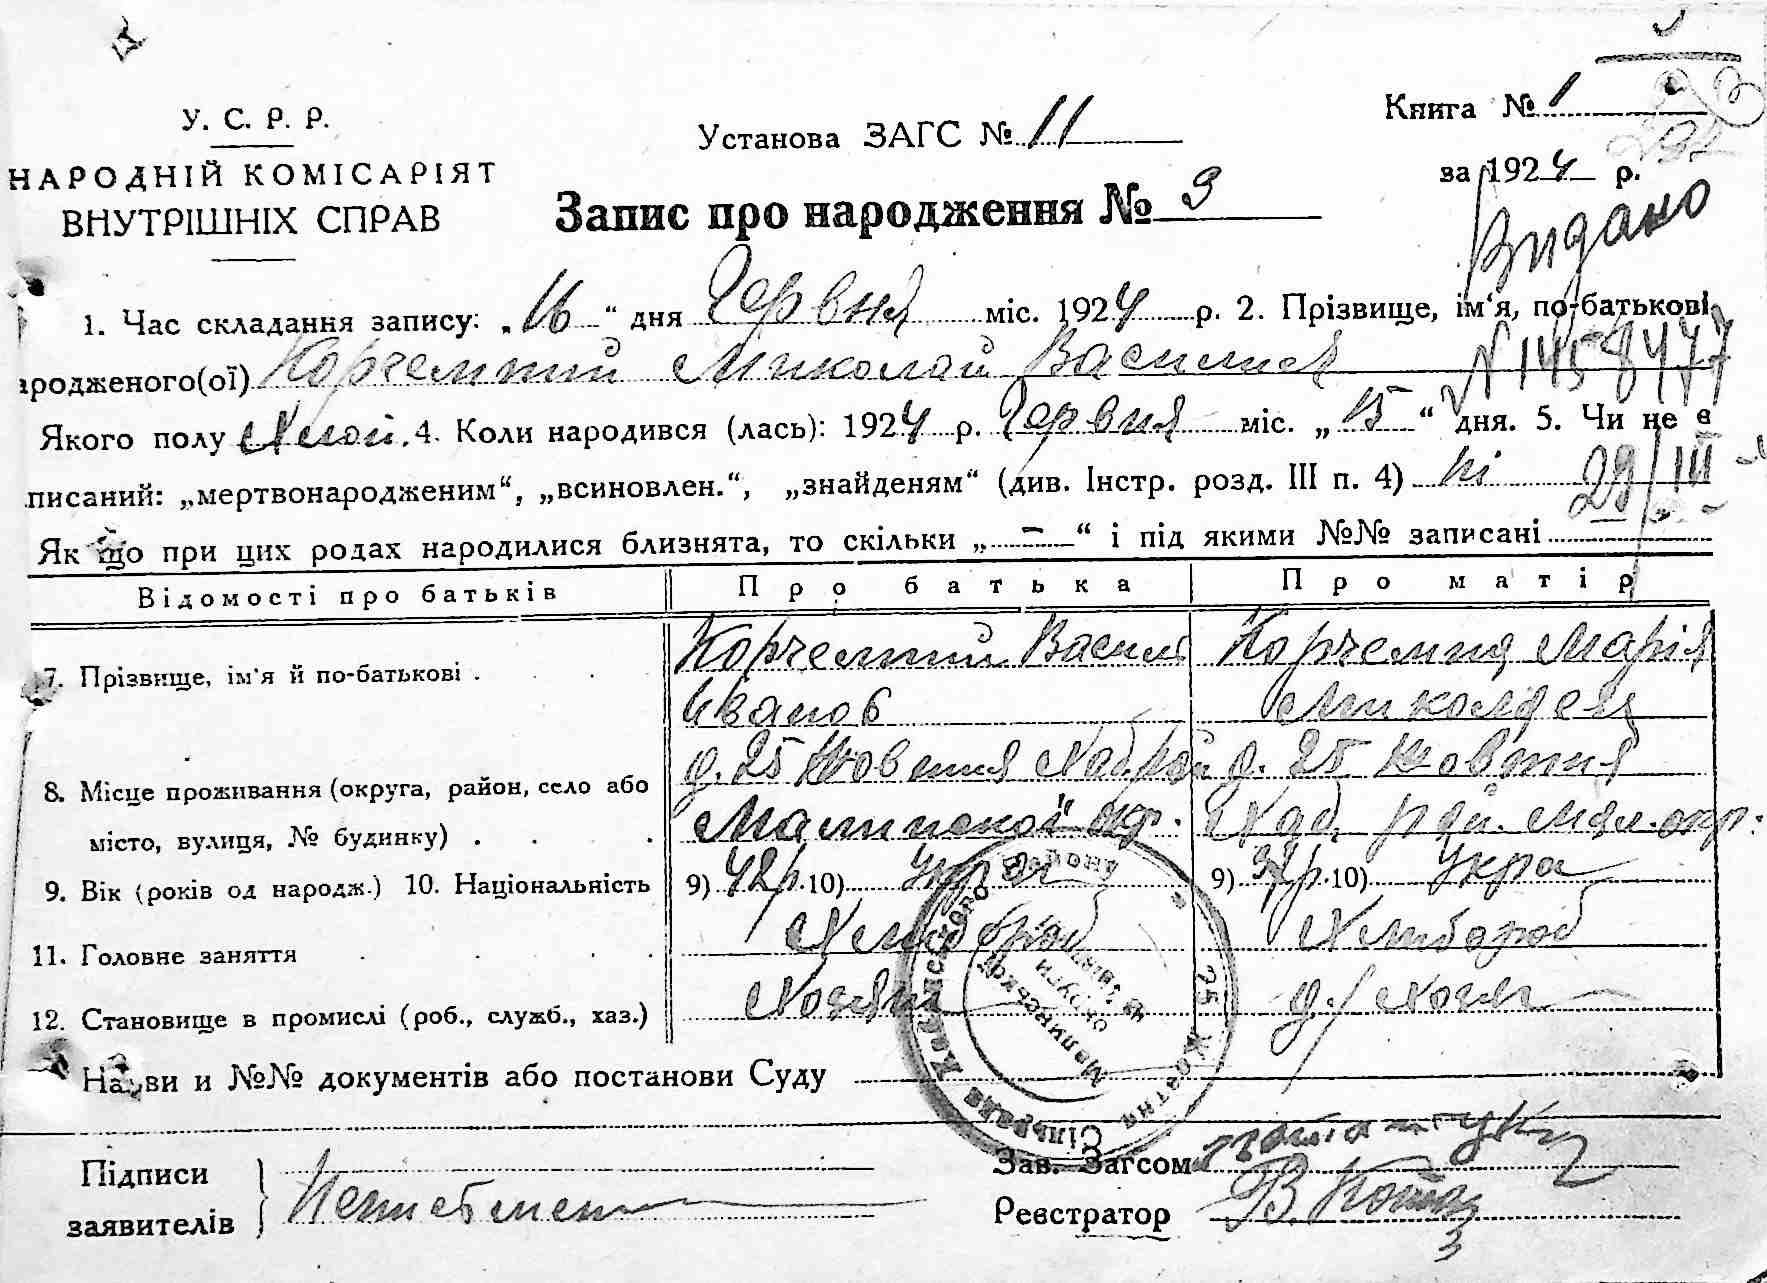 У. С. Р. Р.
НАРОДНІЙ КОМІСАРІЯТ
ВНУТРІШНІХ СПРАВ
Установа ЗАГС № 11
Книга № 1
за 1924 р.
Запис про народження № 9
Видано
1. Час складання запису: „16“ дня Червня міс. 1924 р. 2. Прізвище, ім'я, по-батькові
родженого(ої) Корчемний Миколай Василів
N 1458477
Якого полу Хлой. 4. Коли народився (лась): 1924 р. Червня міс. „15“ дня. 5. Чи не є
писаний: „мертвонародженим“, „всиновлен.“, „знайденям“ (див. Інстр. розд. III п. 4) ні
29/III
Як що при цих родах народилися близнята, то скільки „-“ і під якими №№ записані
Відомості про батьків Про батька Про матір
7. Прізвище, ім'я й по-батькові . Корчемний Василь Корчемная Марія
Іванов Миколаев
8. Місце проживання (округа, район, село або д. 25 Жовтня д. 25 Жовтня
місто, вулиця, № будинку) . Малинской окр. Хаб. рай. Мал. окр.
9. Вік (років од народж.) 10. Національність 9) 42 р. 10) 9) р. 10) Укра
11. Головне заняття Хлибороб Хлибороб
12. Становище в промислі (роб., служб., хаз.) Хозяин д/хозя
Назви и №№ документів або постанови Суду
Сільрада Района 25 Жовтня
Малинської округи
Підписи
заявителів
Неписьмен
Зав. Загсом
Реєстратор В.